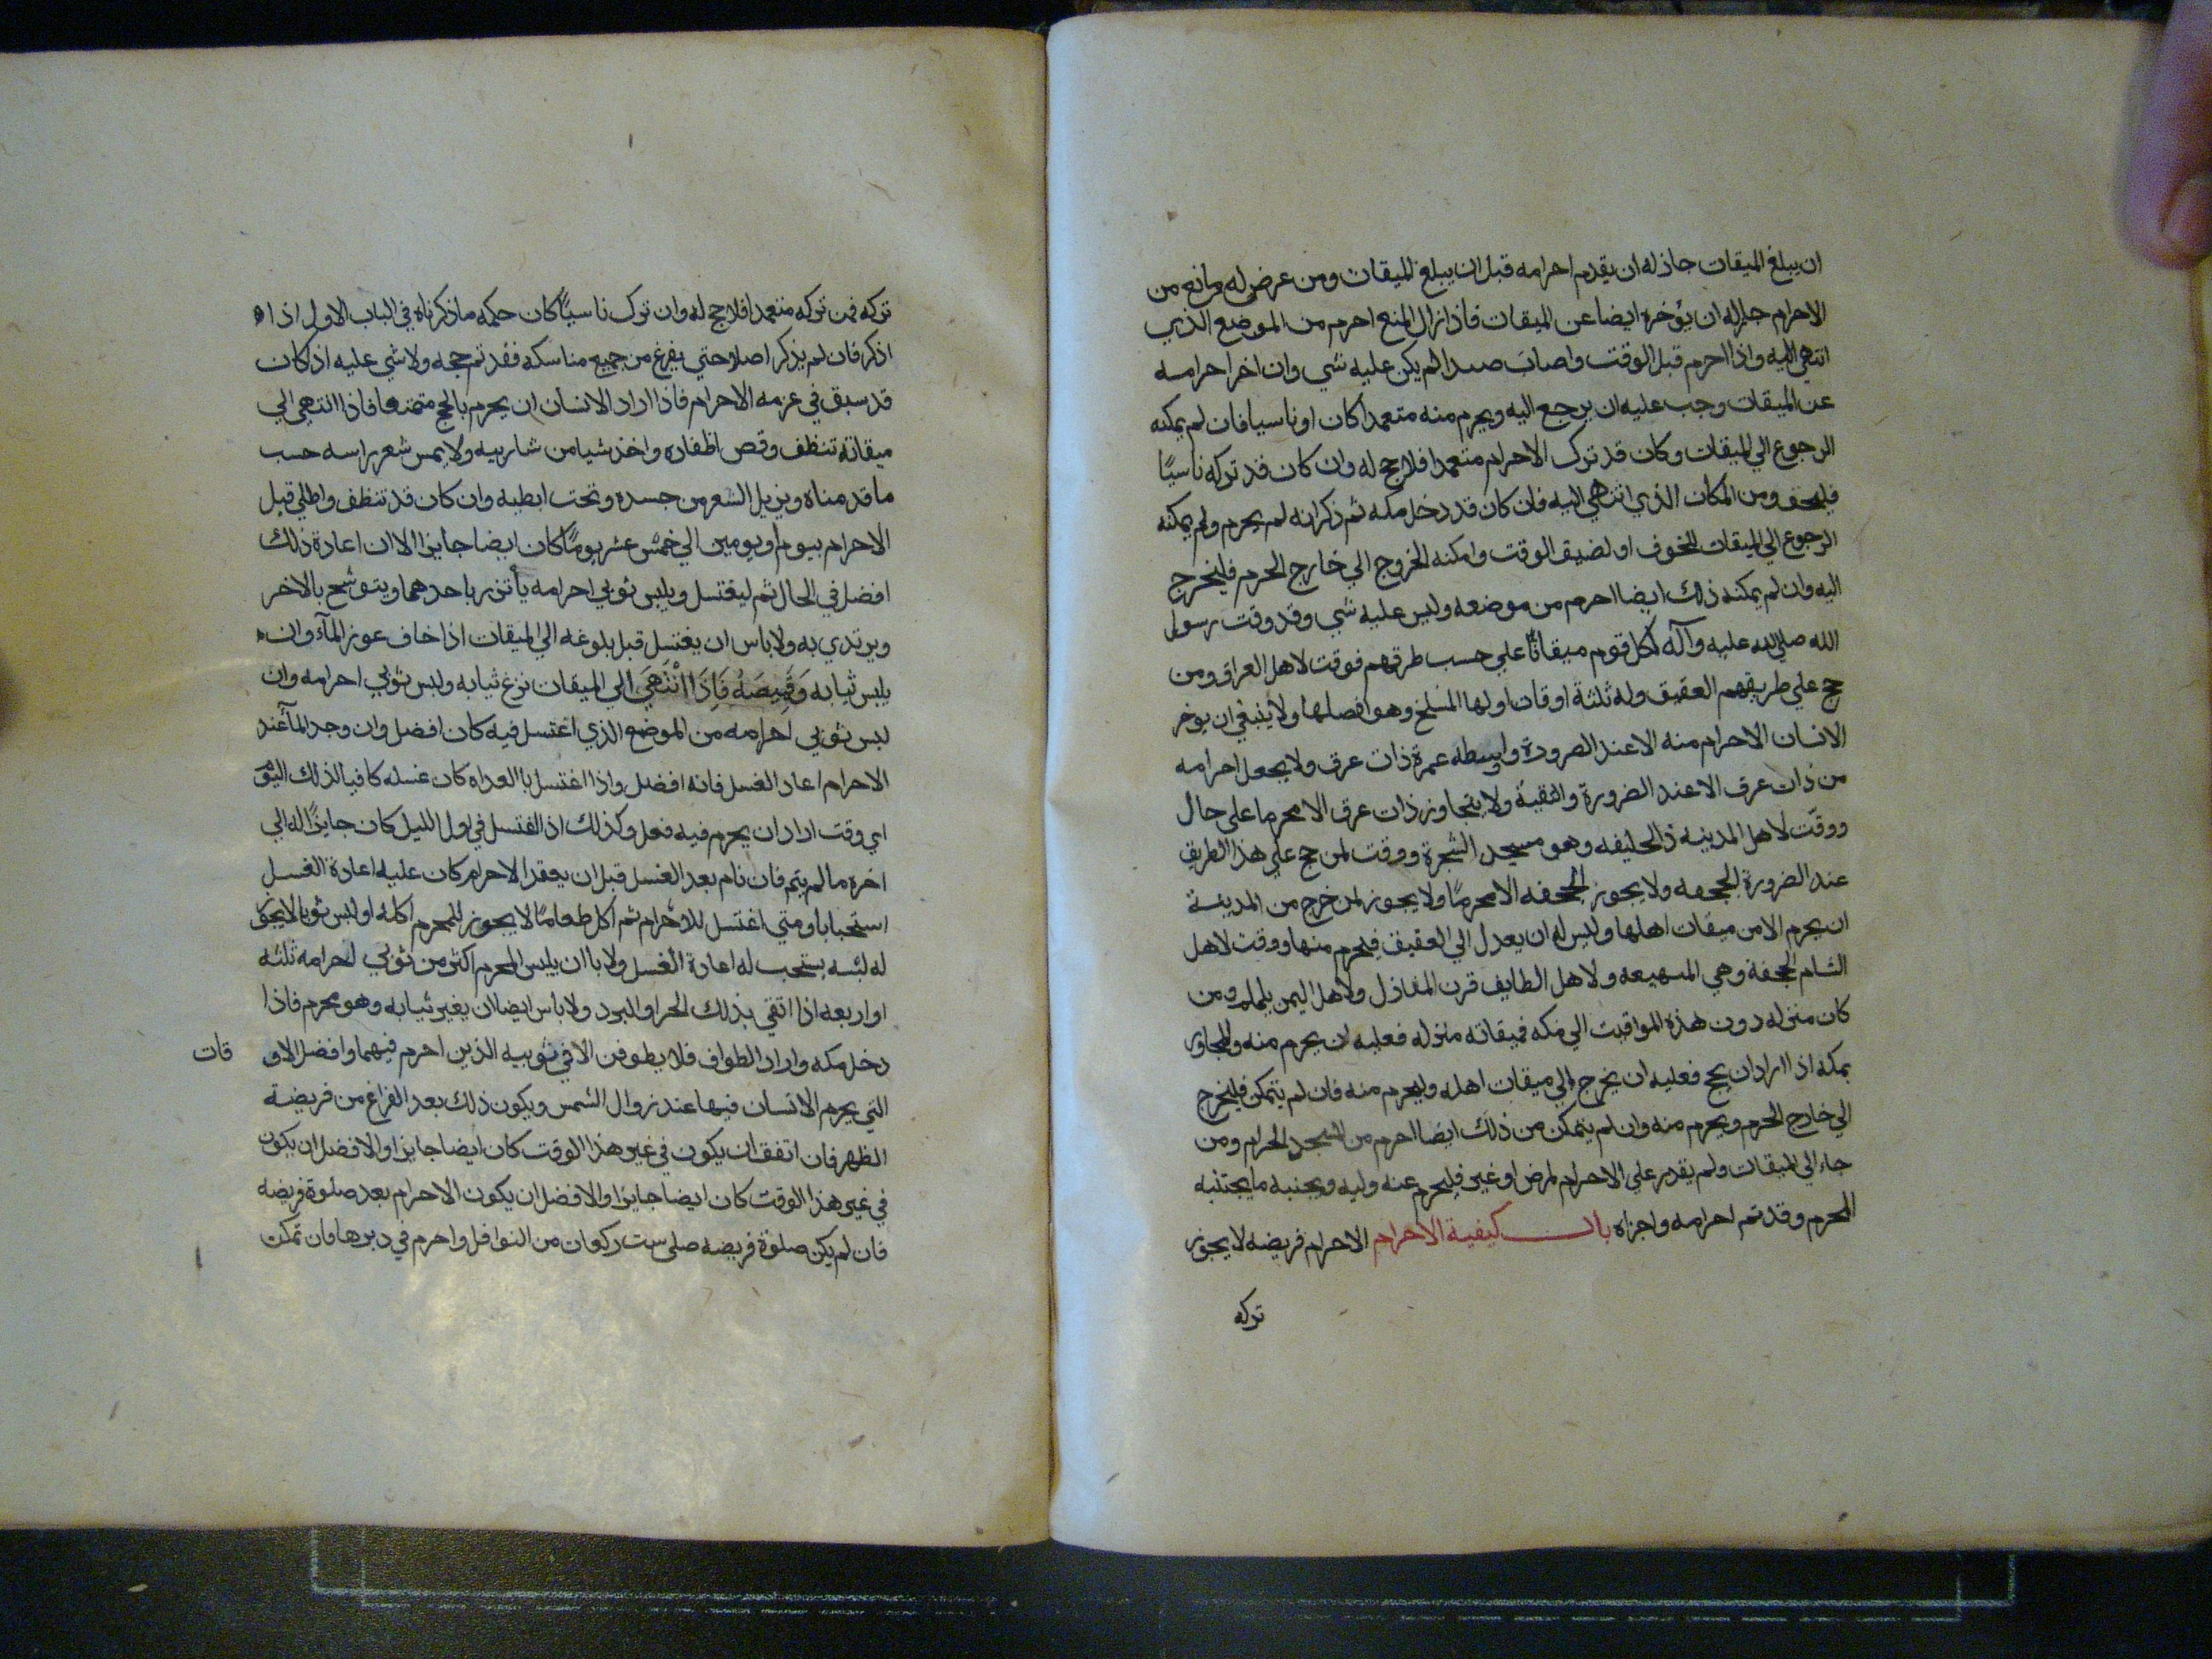 ان يبلغ الميقات جاذ له ان يقدم احرامه قبل ان يبلغ الميقات ومن عرض له مانع من
الاحرام جاز له ان يؤخره ايضا عن الميقات فاذا زال المنع احرم من الموضع الذي
انتهى اليه واذا احرم قبل الوقت واصاب صيدا لم يكن عليه شي وان اخر احرامه
عن الميقات وجب عليه ان يرجع اليه ويحرم منه متعمدا كان او ناسيا فان لم يمكنه
الرجوع الي الميقات وكان قد ترك الاحرام متعمدا فلا حج له وان كان قد تركه ناسيًا
من المكان الذي انتهي اليه فان كان قد دخل مكه ثم ذكر انه لم يحرم ولم يمكنه
الرجوع الي الميقات للخوف او لضيق الوقت وامكنه الخروج الي خارج الحرم فليخرج
اليه وان لم يمكنه ذلك ايضا احرم من موضعه وليس عليه شي وقد وقت رسول
الله صلي الله عليه وآله لكل قوم ميقاتًا علي حسب طرقهم فوقت لاهل العراق ومن
حج علي طريقهم العقيق وله ثلثة اوقات اولها المسلخ وهو افضلها ولا ينبغي ان يوخر
الانسان الاحرام منه الا عند الضرورة واوسطه غمرة ذات عرق ولا يجعل احرامه
من ذات عرق الا عند الضرورة والتقية ولا يتجاوز ذات عرق الا محرما على حال
ووقّت لاهل المدينه ذالحليفه وهو مسجد الشجرة ووقت لمن حج علي هذا الطريق
عند الضرورة الجحفه ولا يجوز الجحفه الا محرمًا ولا يجوز لمن خرج من المدينة
ان يحرم الا من ميقات اهلها وليس له ان يعدل الي العقيق فيحرم منها ووقت لاهل
الشام الجحفة وهي المهيعه ولاهل الطايف قرن المنازل ولاهل اليمن يلملم ومن
كان منزله دون هذه المواقيت الي مكه فميقاته منزله فعليه ان يحرم منه والمجاور
بمكه اذا اراد ان يحج فعليه ان يخرج الي ميقات اهله وليحرم منه فان لم يتمكن فليخرج
الي خارج الحرم ويحرم منه وان لم يتمكن من ذلك ايضا احرم من المسجد الحرام ومن
جاء الي الميقات ولم يقدر علي الاحرام لمرض او غير فليحرم عنه وليه ويجنبه ما يجتنبه
المحرم وقد تم احرامه واجزاه باب كيفية الاحرام الاحرام فريضه لا يجوز
تركه
تركه فمن تركه متعمدا فلا حج له وان ترك ناسيًا كان حكمه ما ذكرناه في الباب الاول اذا
اذكر فان لم يذكر اصلا حتي يفرغ من جميع مناسكه فقد تم حجه ولا شي عليه اذ كان
قد سبق في عزمه الاحرام فاذا اراد الانسان ان يحرم بالحج متمتعا فاذا انتهي الي
ميقاته تنظف وقص اظفاره واخذ شيا من شاربيه ولا يمس شعر راسه حسب
ما قدمناه ويزيل الشعر من جسده وتحت ابطيه وان كان قد تنظف واطلي قبل
الاحرام بيوم او يومين الي خمس عشر يومًا كان ايضا جايزا الا ان اعادة ذلك
افضل في الحال ثم ليغتسل ويلبس ثوبي احرامه يأتزر باحدهما ويتوشح بالاخر
ويرتدي به ولا باس ان يغتسل قبل بلوغه الي الميقات اذا خاف عوز المآء وان
يلبس ثيابه وَقَمِيصَهُ فَاِذَا انْتَهَىَ الي الميقات نزع ثيابه ولبس ثوبي احرامه وان
لبس ثوبي احرامه من الموضع الذي اغتسل فيه كان افضل وان وجد المآ عند
الاحرام اعاد الغسل فانه افضل واذا اغتسل بالغداه كان غسله كافيا لذلك اليوم
اي وقت اراد ان يحرم فيه فعل وكذلك اذا اغتسل في اول الليل كان جايزًا له الي
اخره ما لم ينم فان نام بعد الغسل قبل ان يعقد الاحرام كان عليه اعادة الغسل
استحبابا ومتي اغتسل للاحرام ثم اكل طعامًا لا يجوز للمحرم اكله او لبس ثوبا لا يجوز
له لبسه يستحب له اعادة الغسل ولا باان يلبس المحرم اكثر من ثوبي احرامه ثلثه
او اربعه اذا اتقي بذلك الحر او البرد ولا باس ايضا ان يغير ثيابه وهو محرم فاذا
دخل مكه واراد الطواف فلا يطوفن الا في ثوبيه الذين احرم فيهما وافضل الاو قات
التي يحرم الانسان فيها عند زوال الشمس ويكون ذلك بعد الفراغ من فريضة
الظهر فان اتفق ان يكون في غير هذا الوقت كان ايضا جايزا والافضل ان يكون
في غير هذا الوقت كان ايضا جايزا والافضل ان يكون الاحرام بعد صلوة فريضه
فان لم يكن صلوة فريضه صلى ست ركعات من النوافل واحرم في دبرها فان تمكن